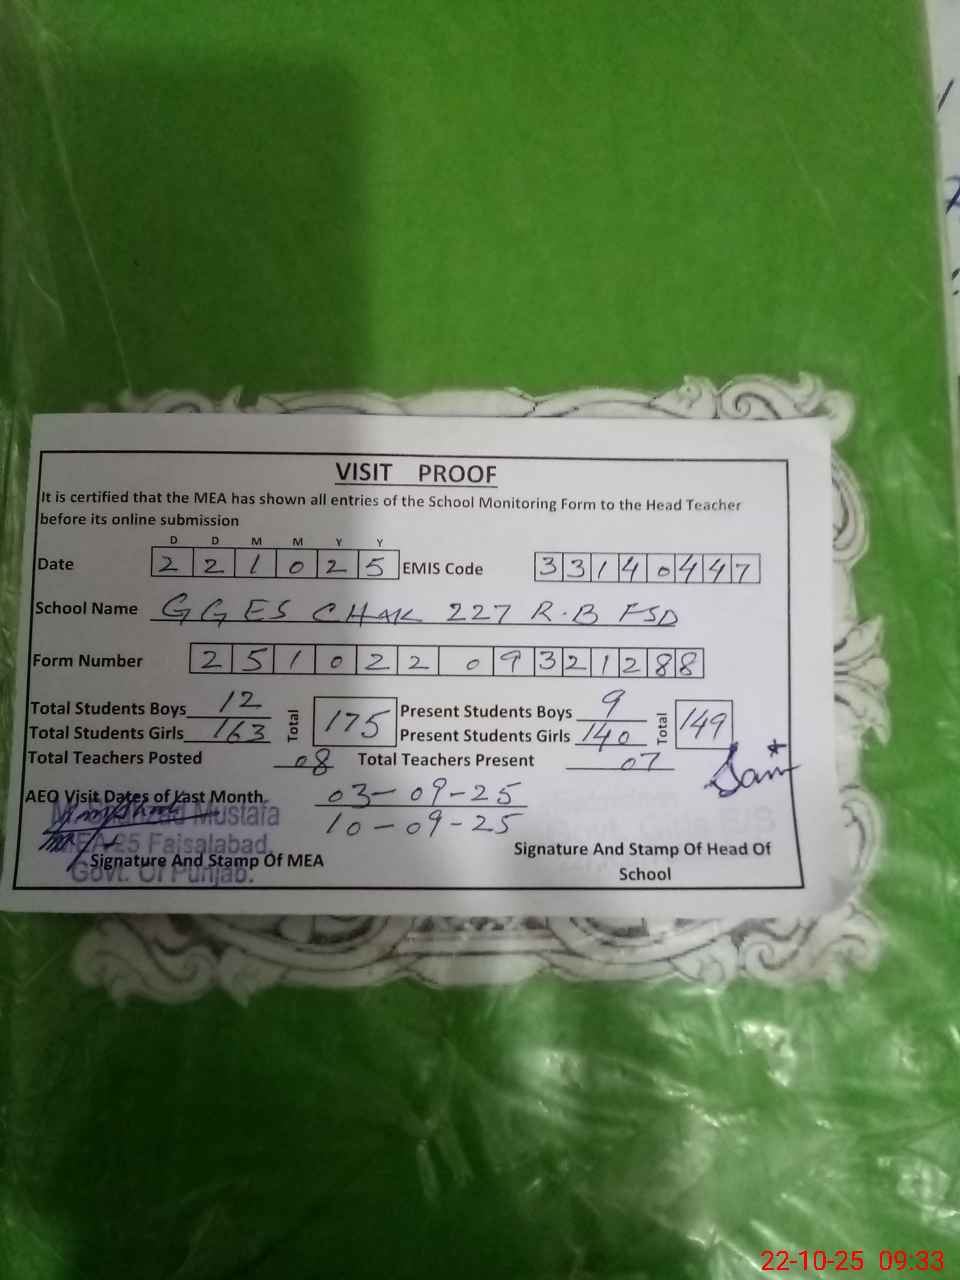 VISIT PROOF
It is certified that the MEA has shown all entries of the School Monitoring Form to the Head Teacher
before its online submission
D D M M Y Y
Date 2 2 1 0 2 5 EMIS Code 3 3 1 4 0 4 4 7
School Name GGES CHAK 227 R-B FSD
Form Number 2 5 1 0 2 2 0 9 3 2 1 2 8 8
Total Students Boys 12 Total 175 Present Students Boys 9 Total 149
Total Students Girls 163 Present Students Girls 140
Total Teachers Posted 08 Total Teachers Present 07
AEO Visit Dates of Last Month 03-09-25
10-09-25
Mustafa
MEA-25 Faisalabad.
Signature And Stamp Of MEA
Govt. Of Punjab.
Signature And Stamp Of Head Of
School
22-10-25 09:33